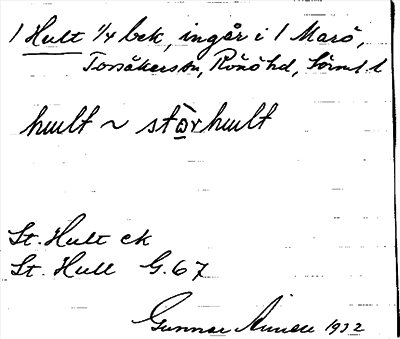 1 Hult 1/4 bek, ingår i 1 Marö,
Torsåkers sn, Rönö hd, Sörml. l
hult ~ stòrhult
St. Hult ck
St. Hull G. 67
Gunnar 1932